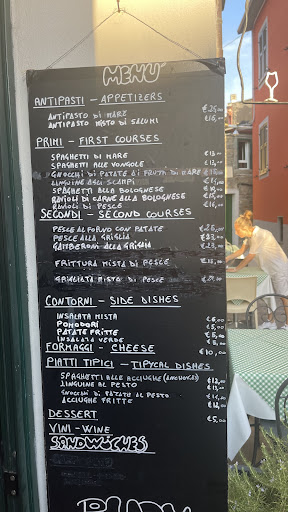 MENU'
ANTIPASTI - APPETIZERS
ANTIPASTO DI MARE €25,00
ANTIPASTO MISTO DI SALUMI €16,00
PRIMI - FIRST COURSES
SPAGHETTI DI MARE
SPAGHETTI ALLE VONGOLE
GNOCCHI DI PATATE AI FRUTTI DI MARE
LINGUINE AGLI SCAMPI
SPAGHETTI ALLA BOLOGNESE
RAVIOLI DI CARNE ALLA BOLOGNESE
RAVIOLI DI PESCE
SECONDI - SECOND COURSES
PESCE AL FORNO CON PATATE
PESCE ALLA GRIGLIA
GAMBERONI ALLA GRIGLIA
FRITTURA MISTA DI PESCE
GRIGLIATA MISTA DI PESCE
CONTORNI - SIDE DISHES
INSALATA MISTA €6,00
POMODORI €5,00
PATATE FRITTE €5,00
INSALATA VERDE
FORMAGGI - CHEESE €10,00
PIATTI TIPICI - TIPYCAL DISHES
SPAGHETTI ALLE ACCIUGHE (ANCHOVIES)
LINGUINE AL PESTO
GNOCCHI DI PATATE AL PESTO
ACCIUGHE FRITTE
DESSERT €5,00
VINI - WINE
SANDWICHES